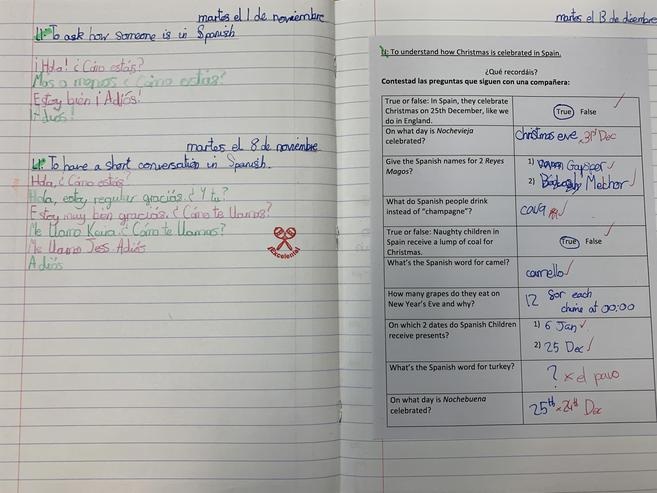 martes el 1 de noviembre
LI: To ask how someone is in Spanish
¡Hola! ¿Cómo estás?
Mas o menos ¿Cómo estás?
Estoy bien ¡Adiós!
Adios!
martes el 8 de noviembre
LI: To have a short conversation in Spanish.
Hola, ¿Cómo estás?
Hola, estoy regular gracias. ¿Y tu?
Estoy muy bien gracias. ¿Cómo te llamas?
Me llamo Keira ¿Cómo te llamas?
Me llamo Jess Adiós
Adiós
¡Excelente!
martes el 13 de diciembre
LI: To understand how Christmas is celebrated in Spain.
¿Qué recordáis?
Contestad las preguntas que siguen con una compañera:
True or false: In Spain, they celebrate
Christmas on 25th December, like we
do in England.
True False
On what day is Nochevieja
celebrated?
Christmas eve 31st Dec
Give the Spanish names for 2 Reyes
Magos?
1) Gaspar
2) Melchor
What do Spanish people drink
instead of "champagne"?
cava
True or false: Naughty children in
Spain receive a lump of coal for
Christmas.
True False
What's the Spanish word for camel?
camello
How many grapes do they eat on
New Year's Eve and why?
12 for each
chime at 00:00
On which 2 dates do Spanish Children
receive presents?
1) 6 Jan
2) 25 Dec
What's the Spanish word for turkey?
? x el pavo
On what day is Nochebuena
celebrated?
25th x 24th Dec